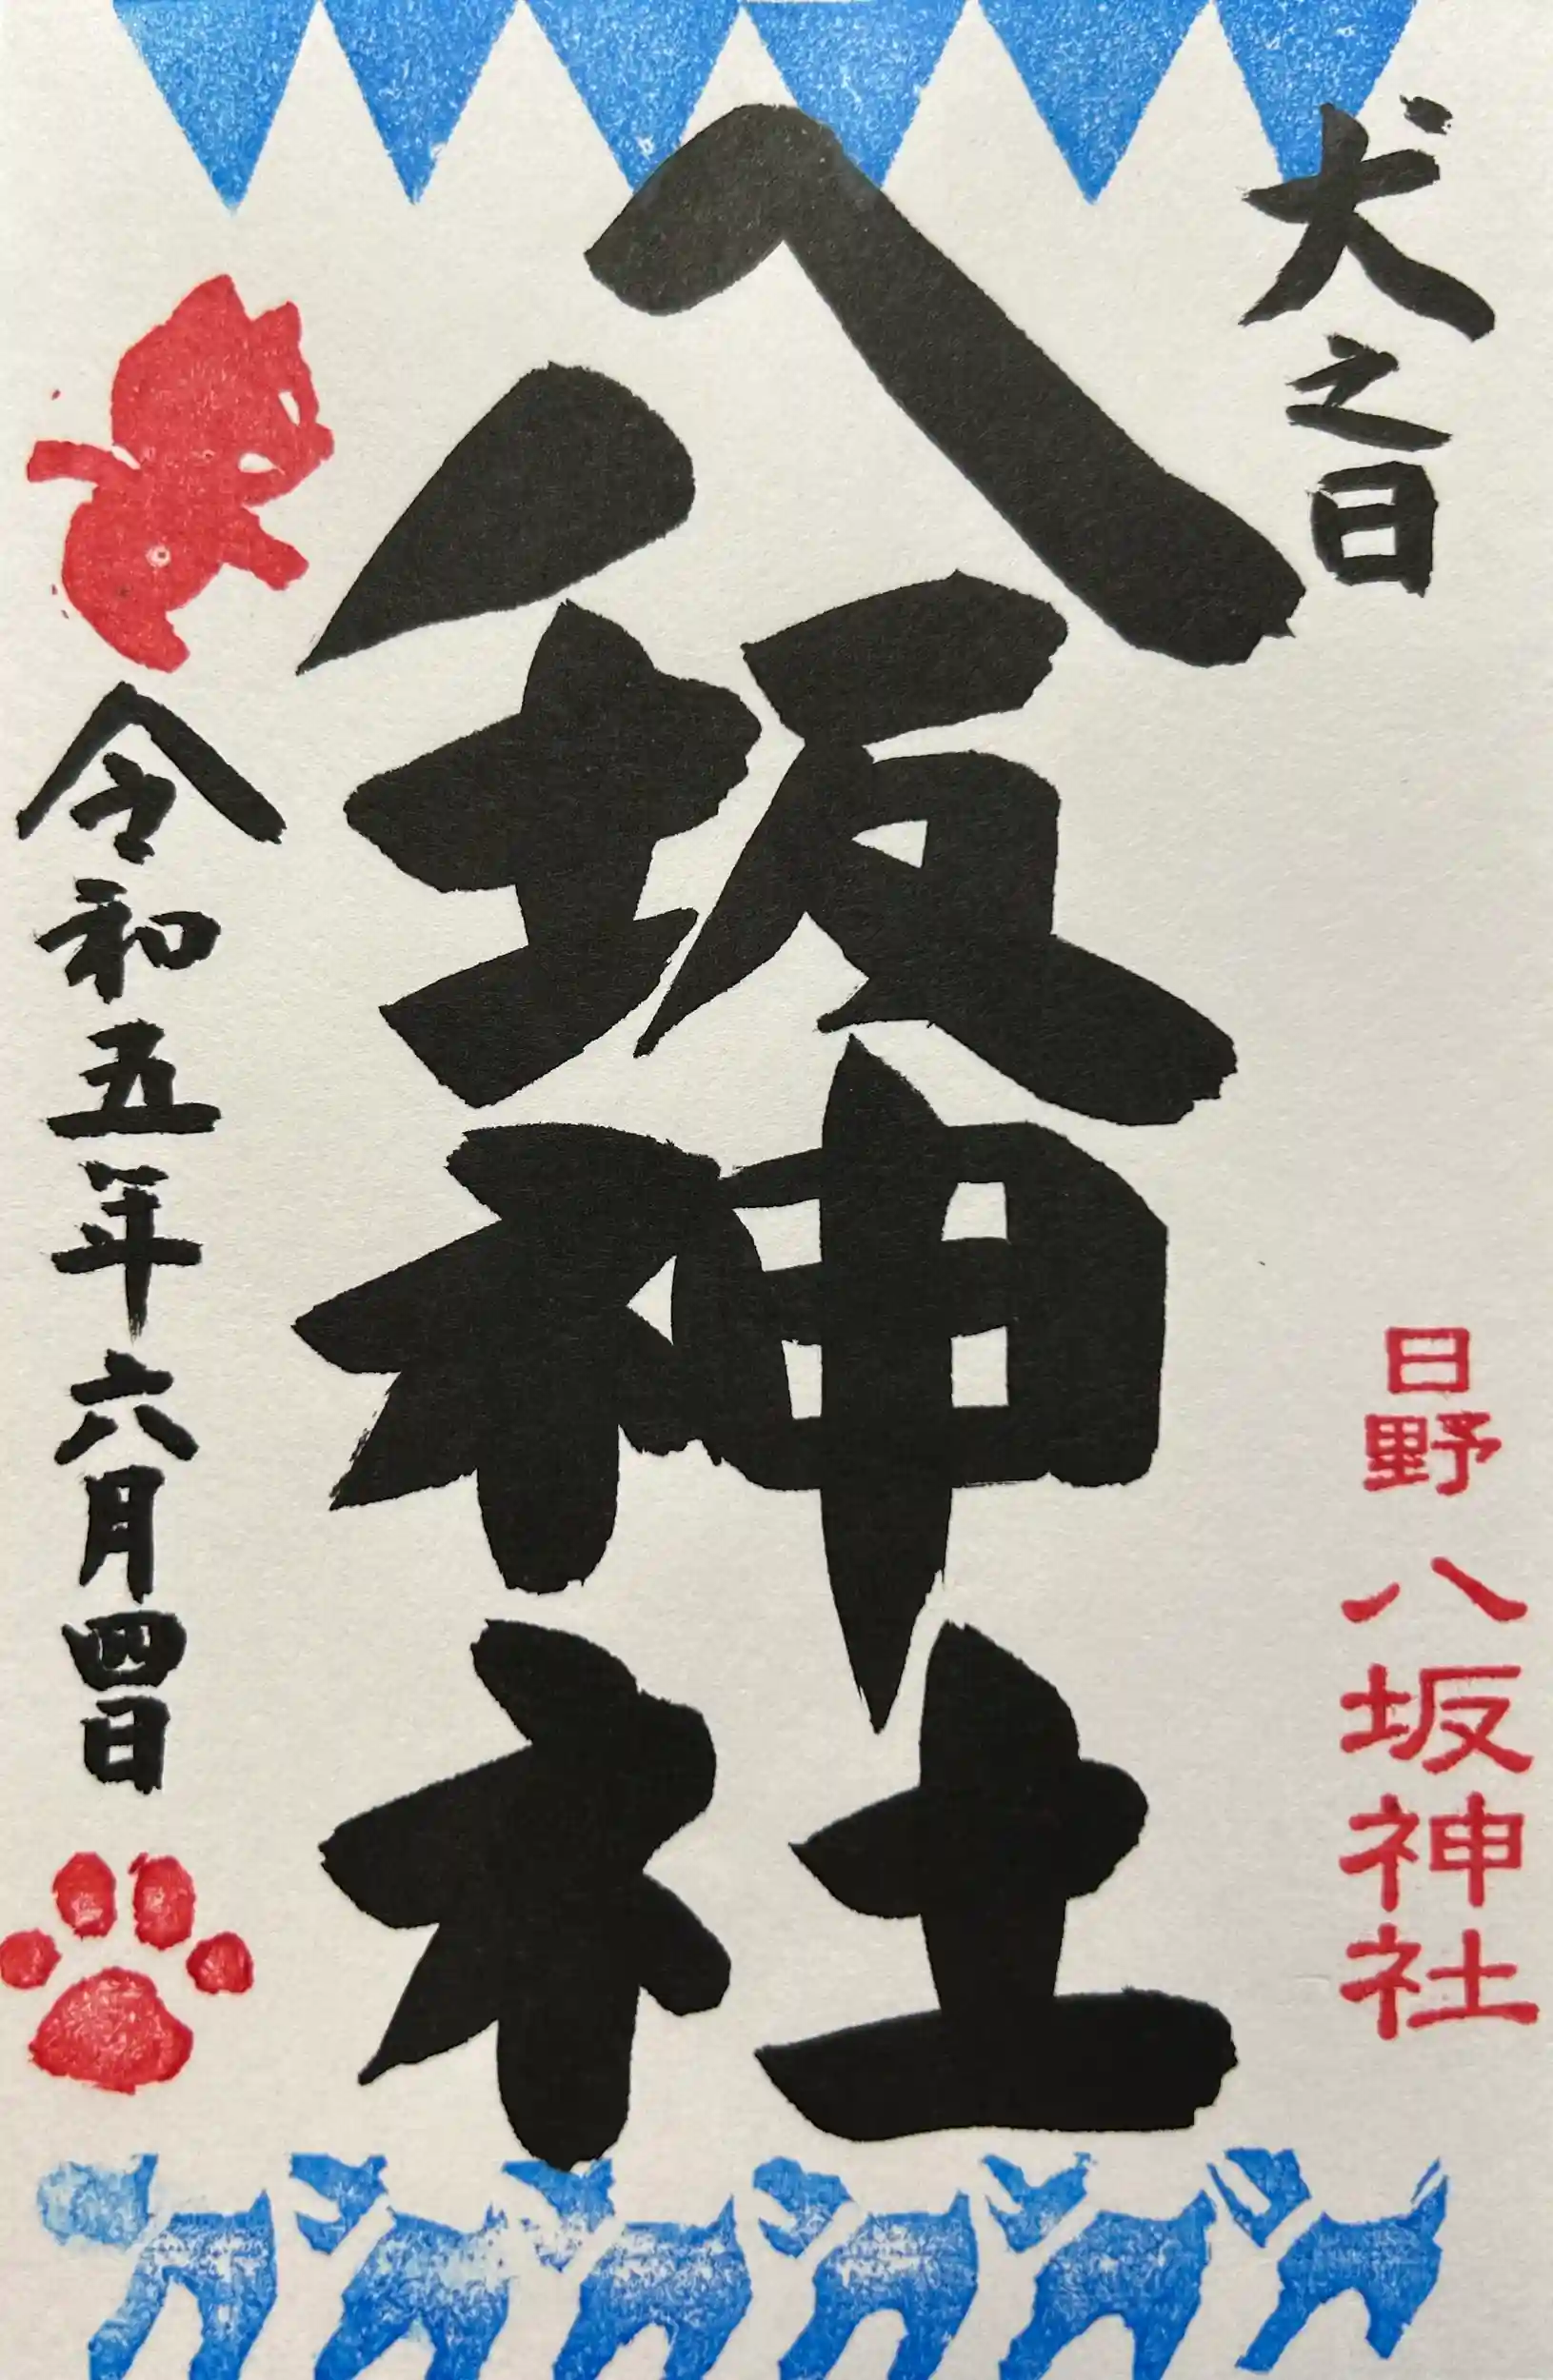 犬之日
日野
八坂神社
八坂神社
令和五年六月四日